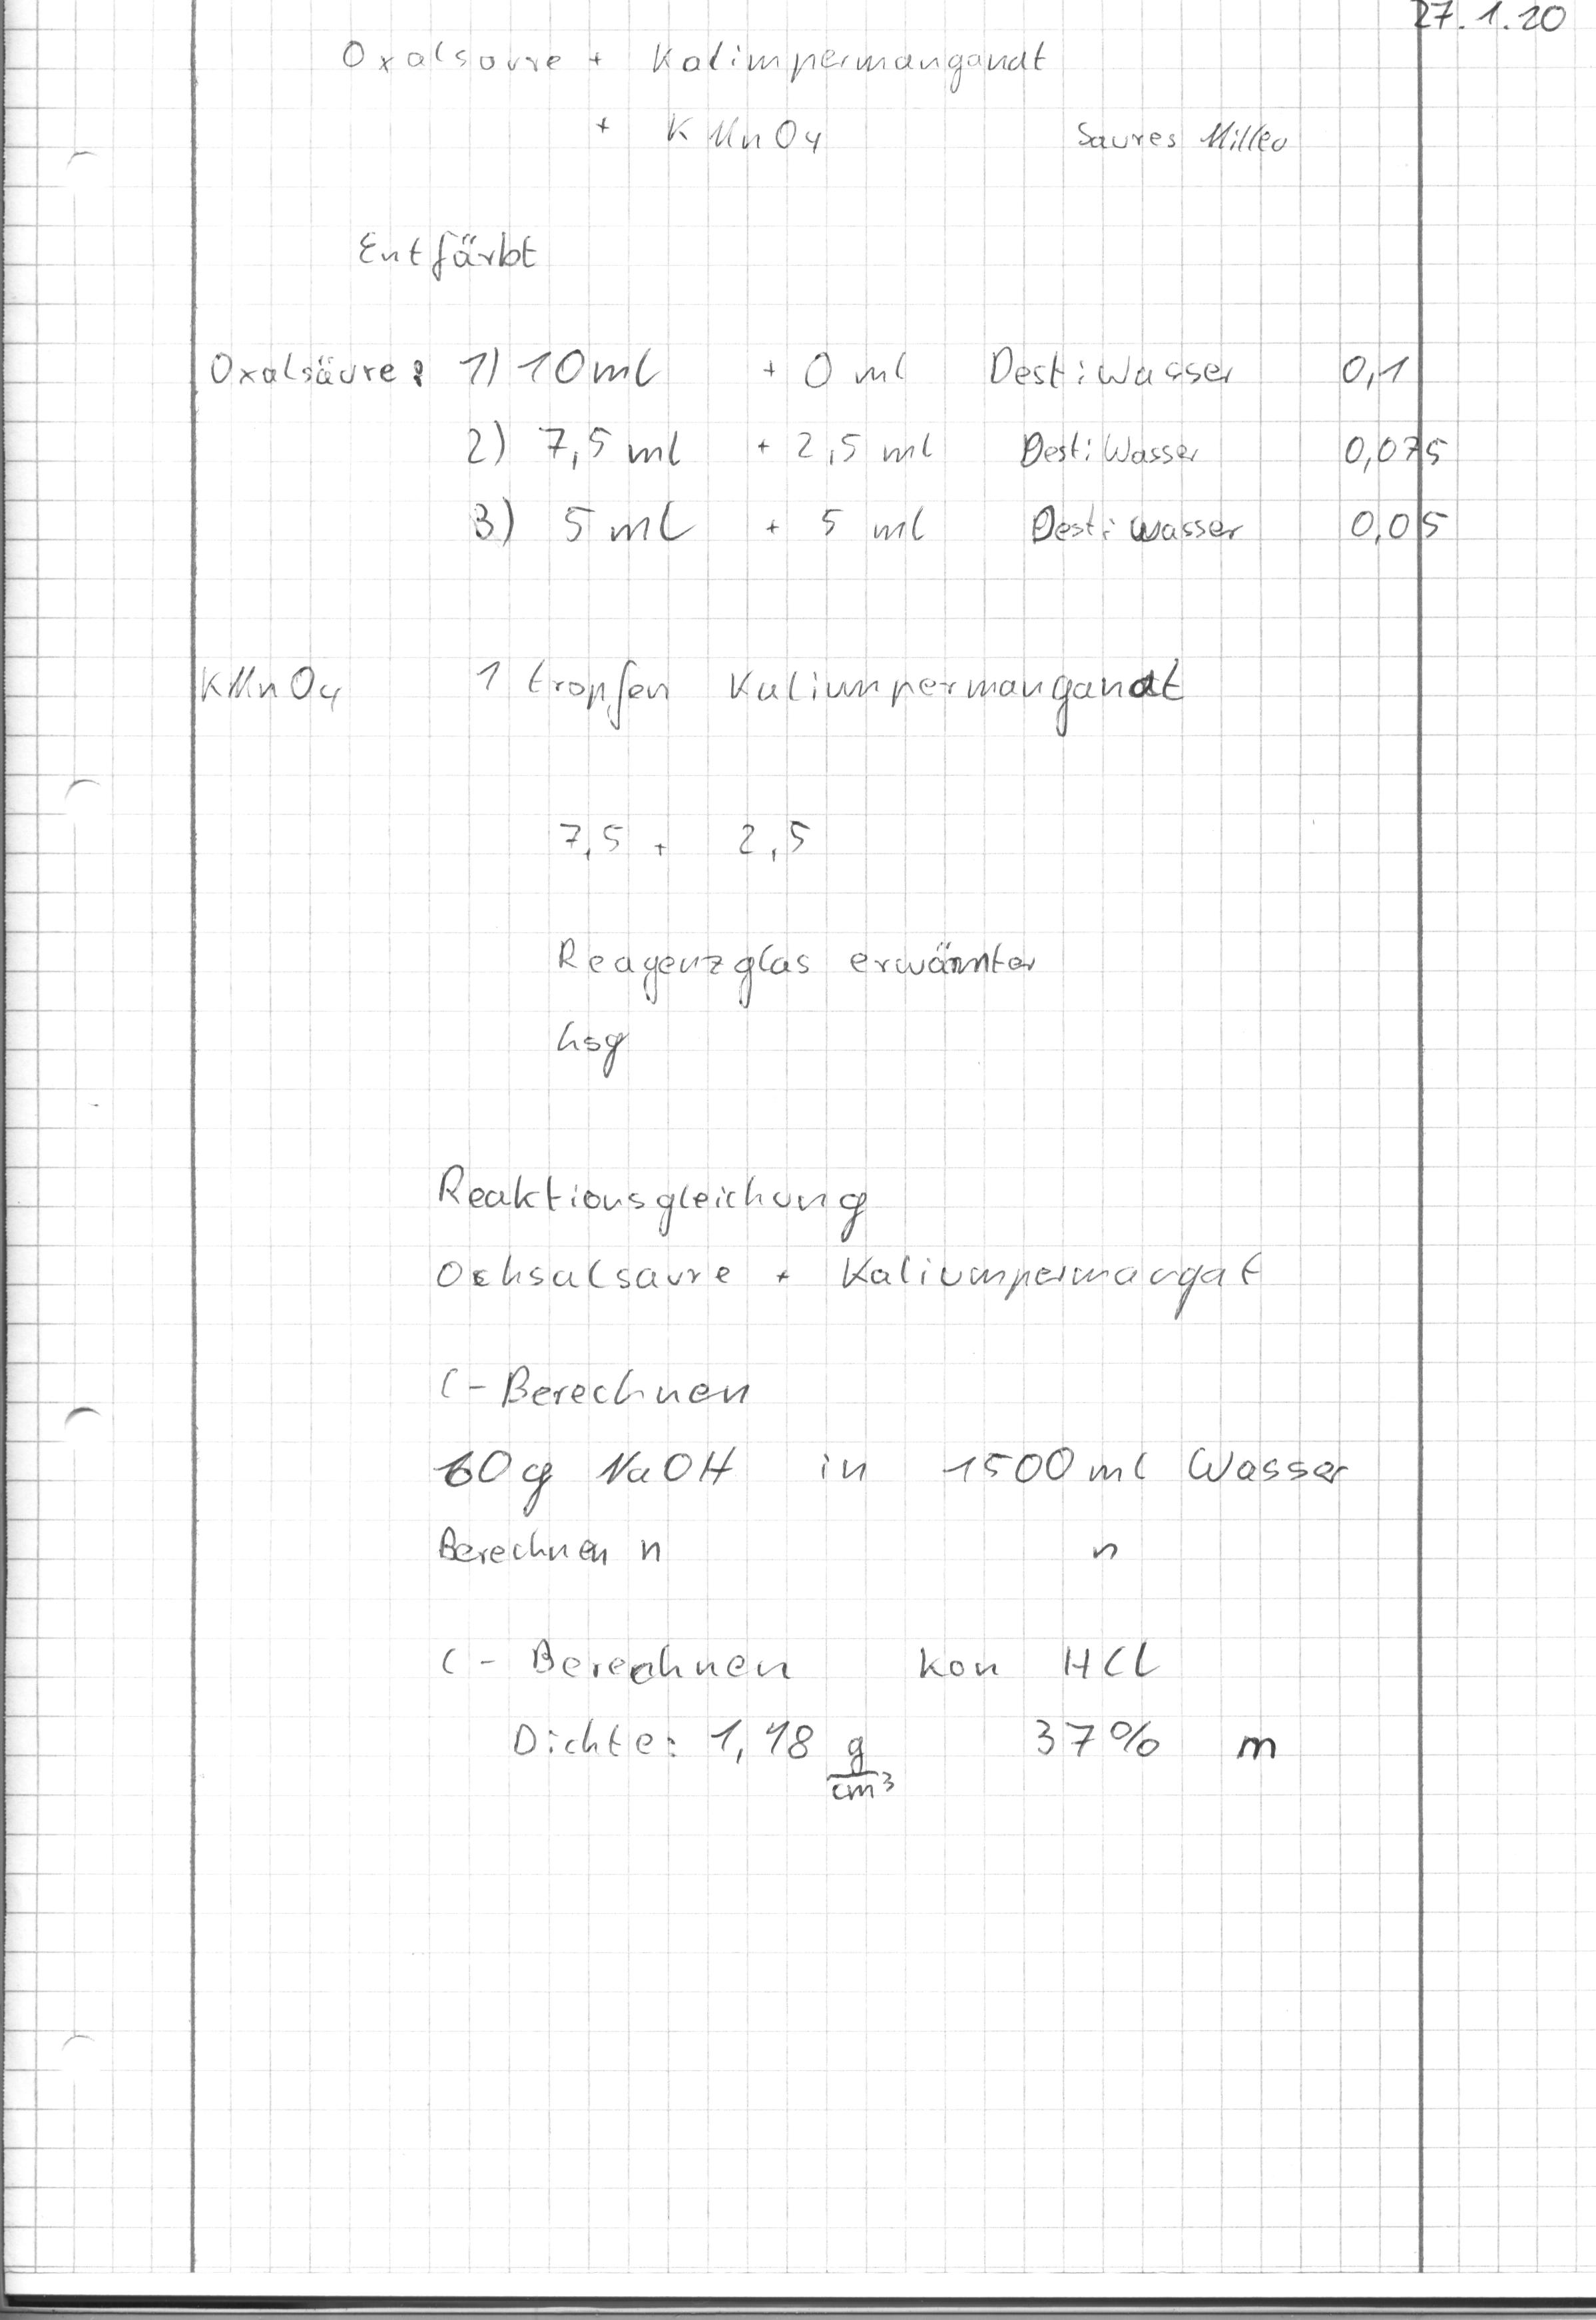 27.1.20
Oxalsaure + Kalimpermanganat
+ KMnO4 Saures Milleu
Entfärbt
Oxalsäure: 1) 10ml + 0 ml Dest: Wasser 0,1
2) 7,5 ml + 2,5 ml Dest: Wasser 0,075
3) 5 ml + 5 ml Dest: Wasser 0,05
KMnO4 1 tropfen Kaliumpermanganat
7,5 + 2,5
Reagenzglas erwärmter
hsg
Reaktionsgleichung
Ochsalsaure + Kaliumpermangat
C-Berechnen
60g NaOH in 1500ml Wasser
Berechnen n n
C- Berechnen kon HCl
Dichte: 1,18 g/cm³ 37% m